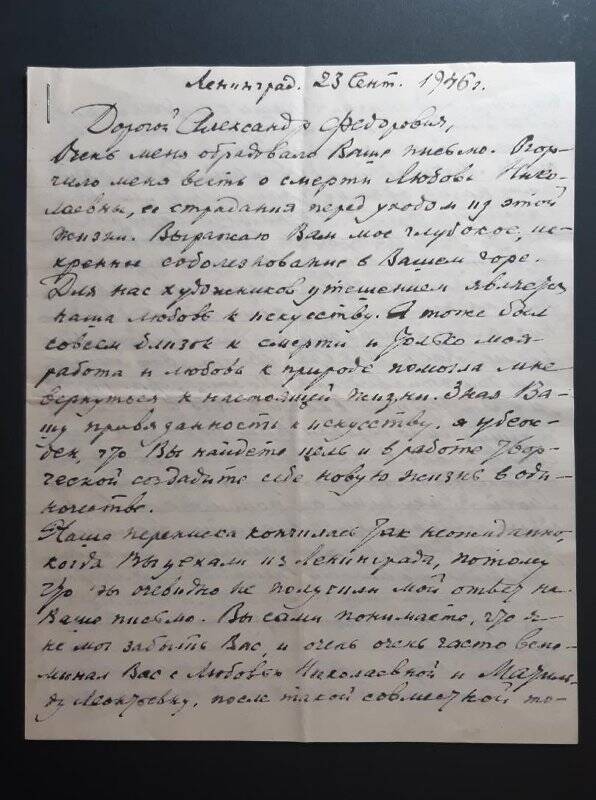 Ленинград. 23 Сент. 1946 г.
Дорогой Александр Федорович,
Очень меня обрадовало Ваше письмо. Огор-
чило меня весть о смерти Любовь Нико-
лаевны, ее страдания перед уходом из этой
жизни. Выражаю Вам мое глубокое, ис-
кренние соболезнование в Вашем горе.
Для нас художников утешением является
наша любовь к искусству. Я тоже был
совсем близок к смерти и только моя
работа и любовь к природе помогла мне
вернуться к настоящей жизни. Зная Ва-
шу привязанность к искусству, я убеж-
ден, что Вы найдете цель и в работе твор-
ческой создадите себе новую жизнь в оди-
ночестве.
Наша переписка кончилась так неожиданно,
когда Вы уехали из Ленинграда, потому
что Вы очевидно не получили мой ответ на
Ваше письмо. Вы сами понимаете, что я
не мог забыть Вас, и очень очень часто вспо-
минал Вас с Любовью Николаевной и Матиль-
ду Леонтьевну, после такой совместной